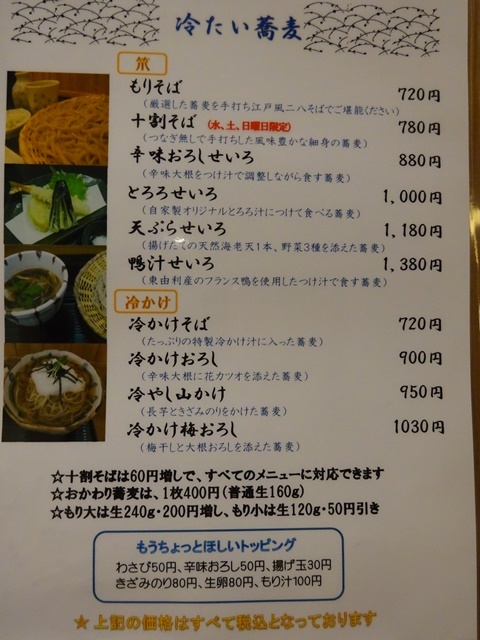 冷たい蕎麦
笊
もりそば 720円
(厳選した蕎麦を手打ち江戸風二八そばでご堪能ください)
十割そば (水、土、日曜日限定) 780円
(つなぎ無しで手打ちした風味豊かな細身の蕎麦)
辛味おろしせいろ 880円
(辛味大根をつけ汁で調整しながら食す蕎麦)
とろろせいろ 1,000円
(自家製オリジナルとろろ汁につけて食べる蕎麦)
天ぷらせいろ 1,180円
(揚げたての天然海老天1本、野菜3種を添えた蕎麦)
鴨汁せいろ 1,380円
(東由利産のフランス鴨を使用したつけ汁で食す蕎麦)
冷かけ
冷かけそば 720円
(たっぷりの特製冷かけ汁に入った蕎麦)
冷かけおろし 900円
(辛味大根に花カツオを添えた蕎麦)
冷やし山かけ 950円
(長芋ときざみのりをかけた蕎麦)
冷かけ梅おろし 1030円
(梅干しと大根おろしを添えた蕎麦)
☆十割そばは60円増しで、すべてのメニューに対応できます
☆おかわり蕎麦は、1枚400円(普通生160g)
☆もり大は生240g・200円増し、もり小は生120g・50円引き
もうちょっとほしいトッピング
わさび50円、辛味おろし50円、揚げ玉30円
きざみのり80円、生卵80円、もり汁100円
★上記の価格はすべて税込となっております